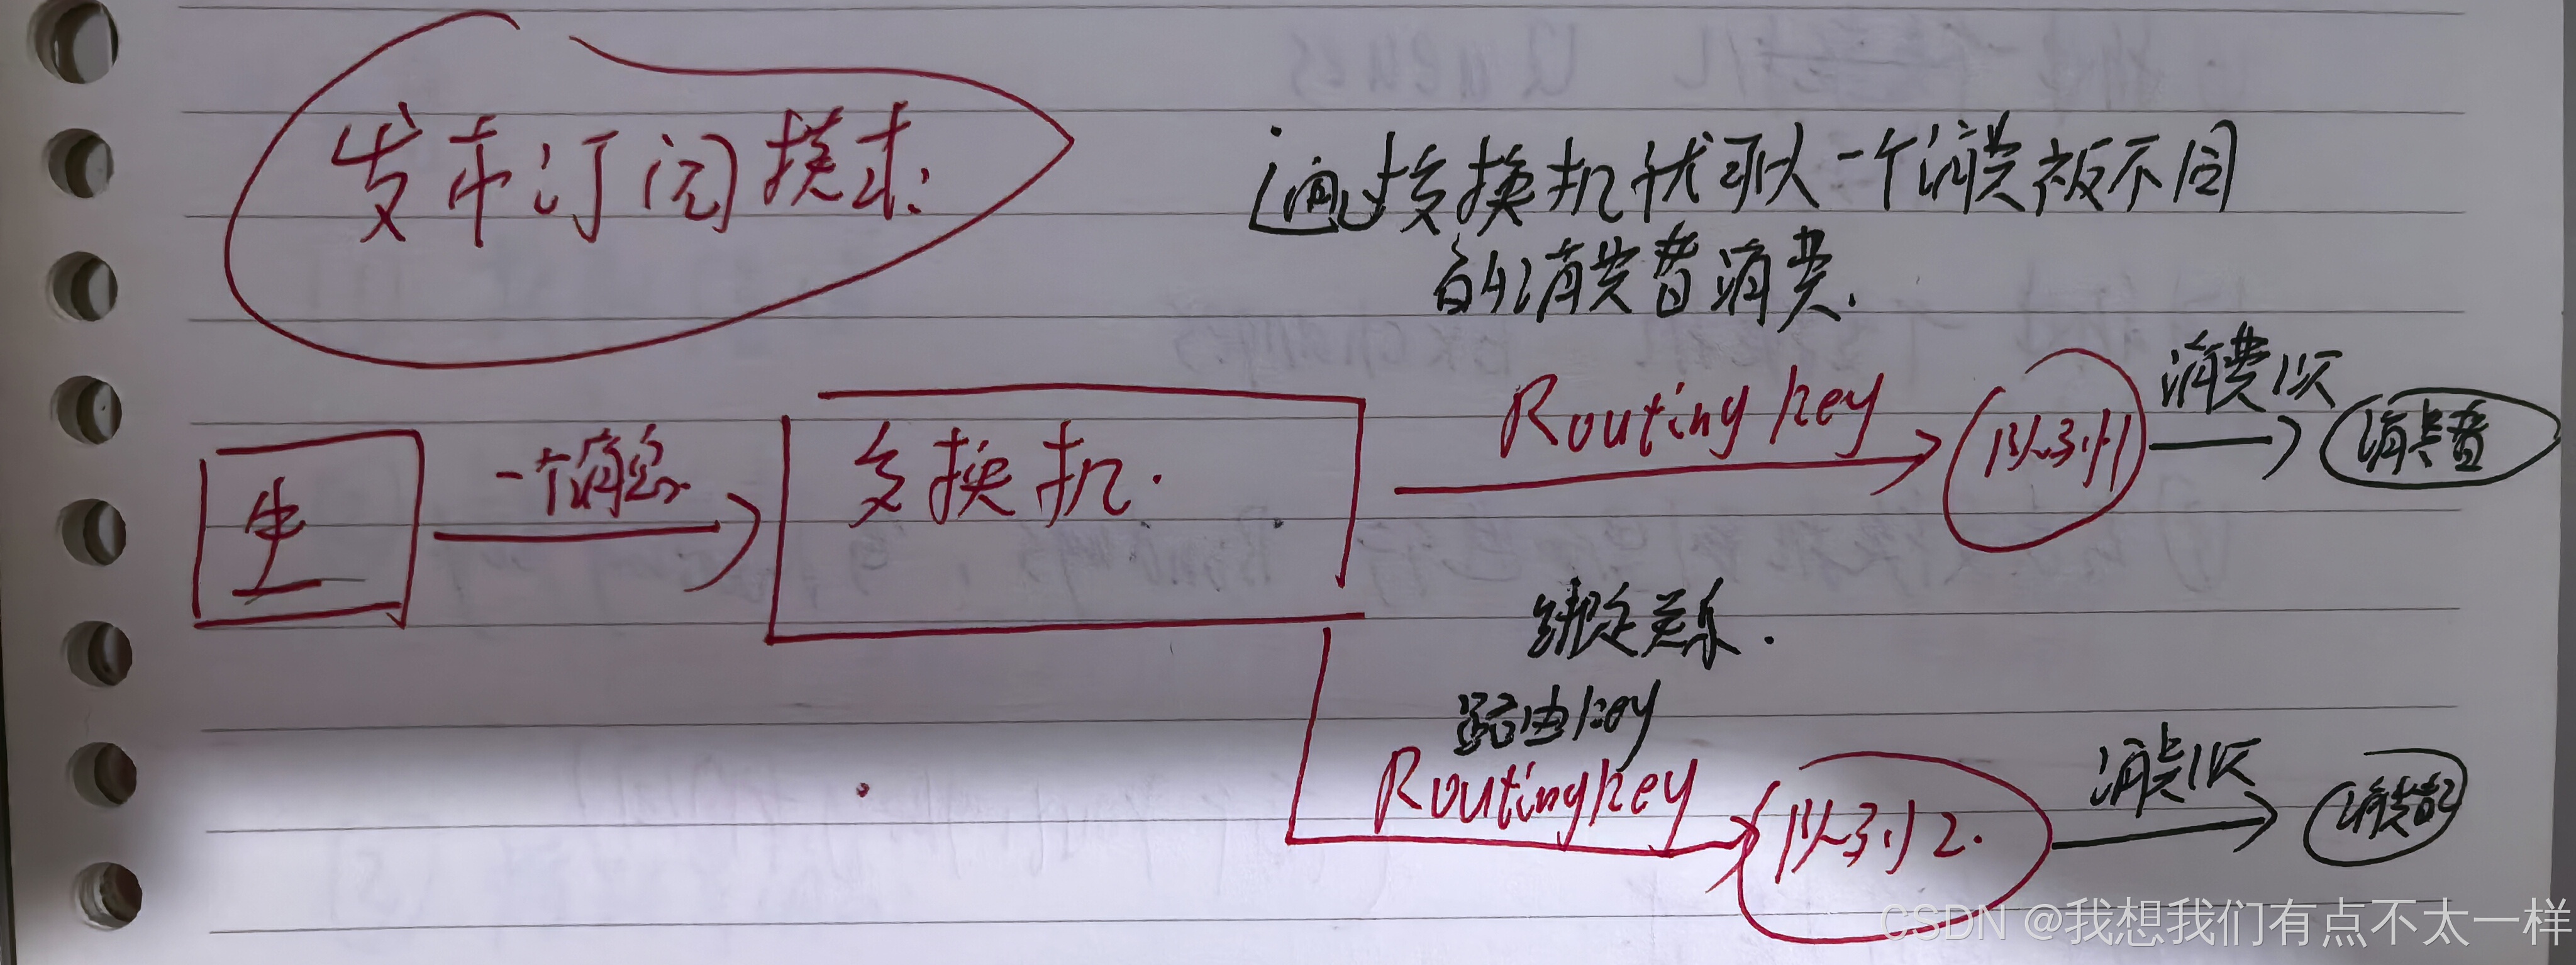 发布订阅模式:
通过交换机状取一个消费被不同
的消费者消费.
生
一个消息
交换机.
Routing key
队列1
消费1次
消费者
绑定关系.
路由key
Routing key
队列2.
消费1次
CSDN @我想我们有点不太一样